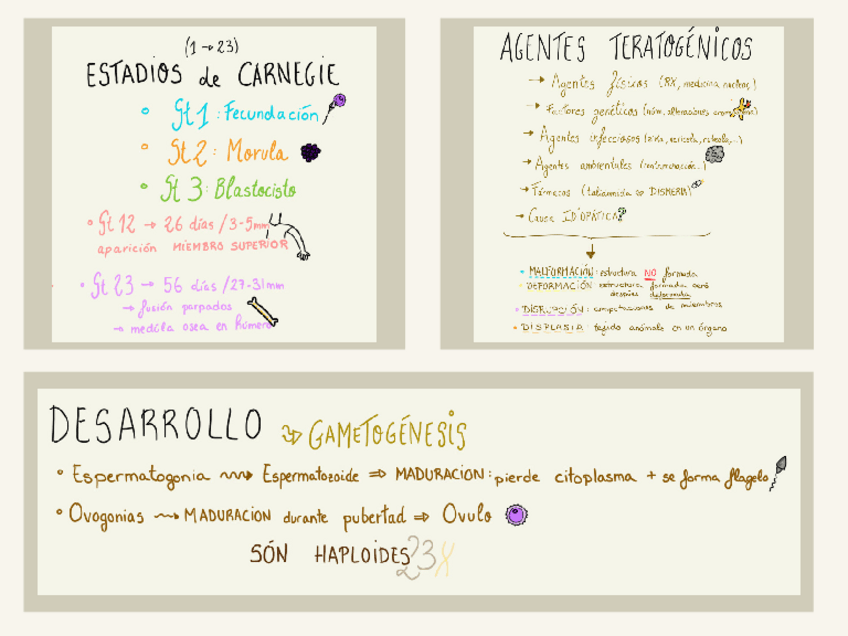 (1→23)
ESTADIOS de CARNEGIE
• St 1 : Fecundación
• St 2 : Morula
• St 3 : Blastocisto
• St 12 → 26 días / 3-5mm
aparición MIEMBRO SUPERIOR
• St 23 → 56 días / 27-31mm
→ fusión parpados
→ medúla osea en húmero
AGENTES TERATOGÉNICOS
→ Agentes físicos (RX, medicina nuclear,)
→ Factores genéticos (núm, alteraciones
→ Agentes infecciosos (zika, varicela, rubeola,..)
→ Agentes ambientales (contaminación..)
→ Fármacos (taliamnida → DISMERIA)
→ Causa IDIOPÁTICA?
• MALFORMACIÓN: estructura NO formada
• DEFORMACIÓN estructura formada pero
después deformada
• DISRUPCIÓN: amputaciones de miembros
• DISPLASIA: tejido anómalo en un órgano
DESARROLLO → GAMETOGÉNESIS
• Espermatogonia → Espermatozoide ⇒ MADURACIÓN: pierde citoplasma + se forma flagelo
• Ovogonias → MADURACIÓN durante pubertad ⇒ Ovulo
SÓN HAPLOIDES 23X